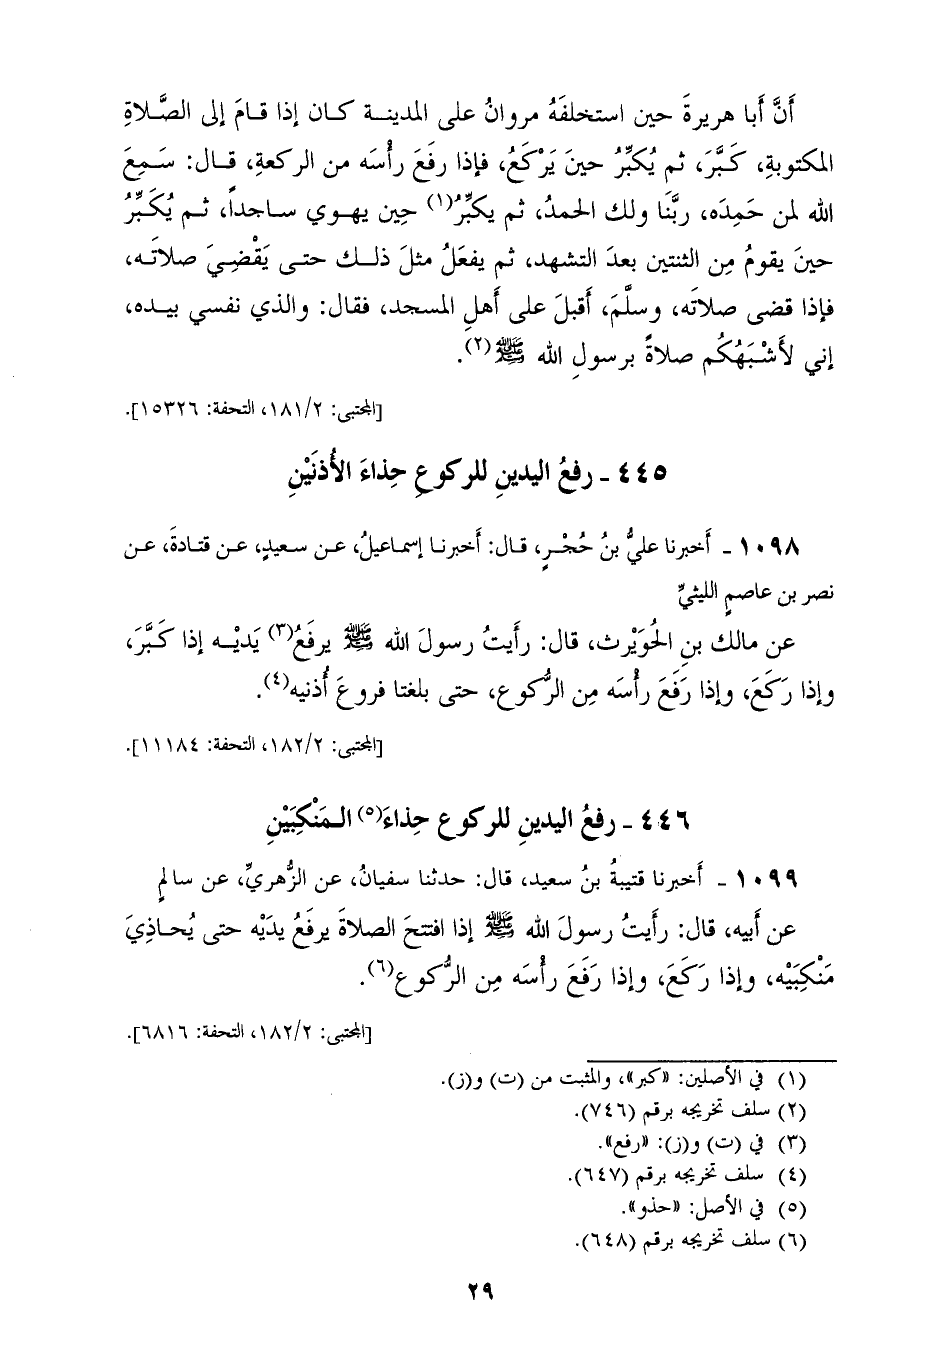 أنَّ أبا هريرةَ حين استخلفَهُ مروانُ على المدينـة كـان إذا قـامَ إلى الصَّلاةِ
المكتوبةِ، كَبَّرَ، ثم يُكبِّرُ حينَ يَرْكَعُ، فإذا رفَعَ رأْسَه من الركعةِ، قـال: سَـمِعَ
الله لمن حَمِدَه، ربَّنَا ولك الحمدُ، ثم يكبِّرُ(١) حِين يهـوي سـاجداً، ثـم يُكَبِّرُ
حينَ يقومُ مِن الثنتين بعدَ التشهد، ثم يفعَلُ مثلَ ذلـك حتـى يَقْضِـيَ صلاتَـه،
فإذا قضى صلاتَه، وسلَّمَ، أقبلَ على أهلِ المسجد، فقال: والذي نفسي بيـده،
إني لأَشْبَهُكُم صلاةً برسولِ الله ﷺ(٢).
[المجتبى: ١٨١/٢، التحفة: ١٥٣٢٦].
٤٤٥ ـ رفعُ اليدينِ للركوعِ حِذاءَ الأُذنَيْنِ
١٠٩٨ ـ أخبرنا عليُّ بنُ حُجْـرٍ، قـال: أخبرنـا إسماعيلُ، عـن سـعيدٍ، عـن قتـادةَ، عـن
نصر بن عاصمٍ الليثيِّ
عن مالك بنِ الحُوَيْرث، قال: رأيتُ رسولَ الله ﷺ يرفَعُ(٣) يَدَيْـه إذا كَبَّرَ،
وإذا رَكَعَ، وإذا رَفَعَ رأْسَه مِن الرُّكوع، حتى بلغتا فروعَ أُذنيه(٤).
[المجتبى: ١٨٢/٢، التحفة: ١١١٨٤].
٤٤٦ ـ رفعُ اليدينِ للركوع حِذاءَ(٥) الـمَنْكِبَيْنِ
١٠٩٩ ـ أخبرنا قتيبةُ بنُ سعيد، قال: حدثنا سفيانُ، عن الزُّهريِّ، عن سالمٍ
عن أبيه، قال: رأيتُ رسولَ الله ﷺ إذا افتتحَ الصلاةَ يرفَعُ يدَيْه حتى يُحـاذِيَ
مَنْكِبَيْه، وإذا رَكَعَ، وإذا رَفَعَ رأْسَه مِن الرُّكوع(٦).
[المجتبى: ١٨٢/٢، التحفة: ٦٨١٦].
(١) في الأصلين: «كبر»، والمثبت من (ت) و(ز).
(٢) سلف تخريجه برقم (٧٤٦).
(٣) في (ت) و(ز): «رفع».
(٤) سلف تخريجه برقم (٦٤٧).
(٥) في الأصل: «حذو».
(٦) سلف تخريجه برقم (٦٤٨).
٢٩